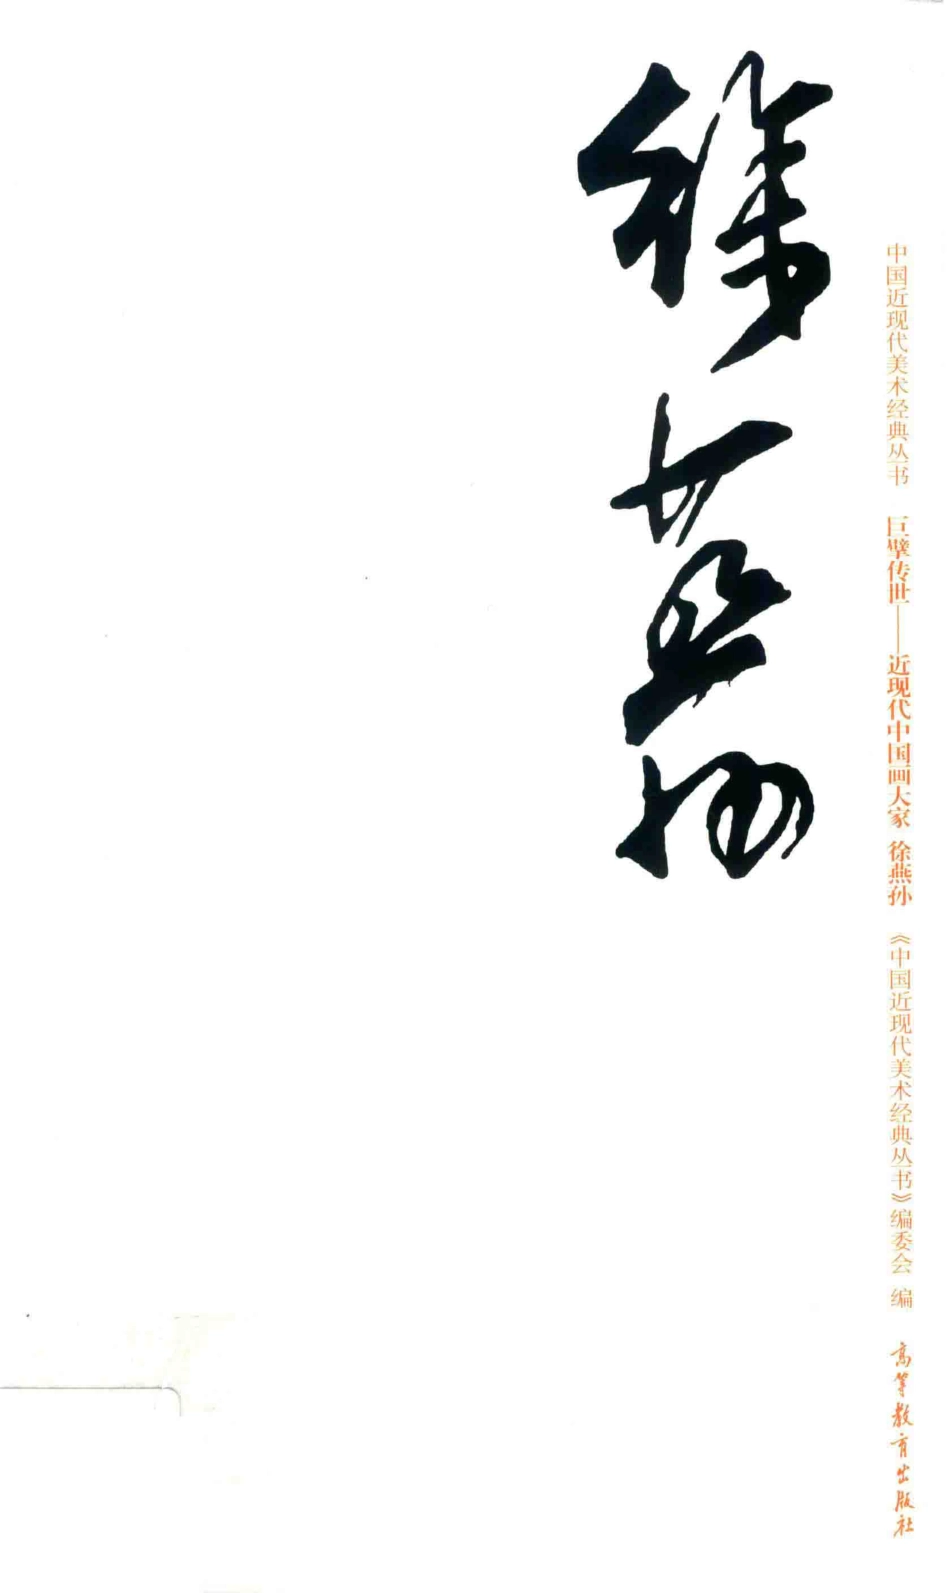 中国近现代美术经典丛书 巨擘传世——近现代中国画大家 徐燕孙 《中国近现代美术经典丛书》编委会 编 高等教育出版社
徐燕孙